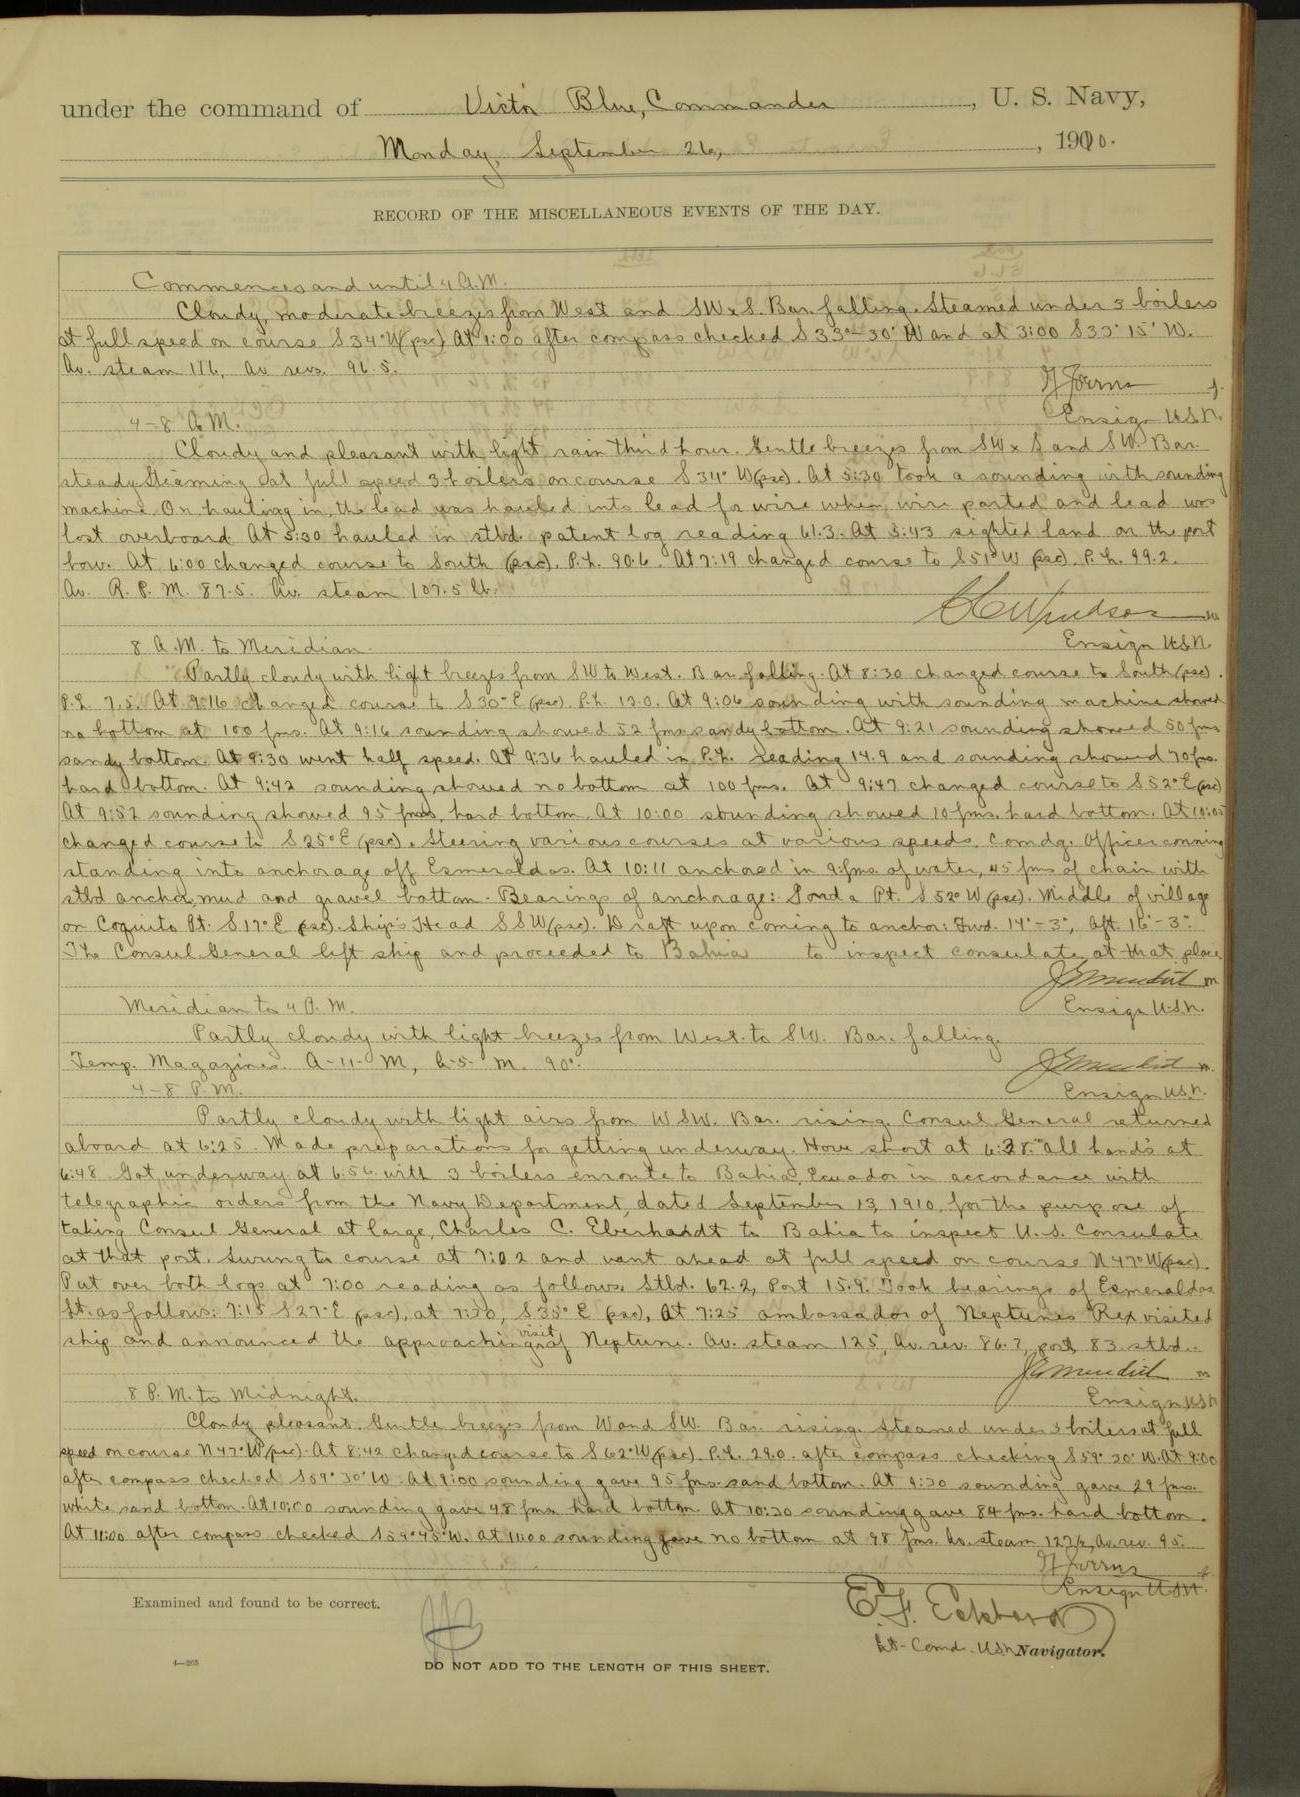 under the command of Victor Blue, Commander, U. S. Navy,
Monday, September 26, 1910.
RECORD OF THE MISCELLANEOUS EVENTS OF THE DAY.
Commences and until 4 A.M.
Cloudy, moderate breezes from West and SWxS. Bar. falling. Steamed under 3 boilers
at full speed on course S 34° W (psc) At 1:00 after compass checked S 33°-30' W and at 3:00 S 33° 15' W.
Av. steam 116, Av revs. 96.5.
Ensign U.S.N.
4-8 A.M.
Cloudy and pleasant with light rain third hour. Gentle breezes from SW x S and SW. Bar.
steady. Steaming at full speed 3 boilers on course S 34° W (psc). At 5:30 took a sounding with sounding
machine. On hauling in, the lead was hauled into lead for wire when wire parted and lead was
lost overboard. At 5:30 hauled in stbd. patent log reading 61.3. At 5:43 sighted land on the port
bow. At 6:00 changed course to South (psc). P.L. 90.6. At 7:19 changed course to S 51° W (psc). P.L. 99.2.
Av. R. P. M. 87.5. Av. steam 107.5 lb.
Ensign U.S.N.
8 A.M. to Meridian
Partly cloudy with light breezes from SW to West. Bar. falling. At 8:30 changed course to South (psc).
P.L. 7.5. At 9:16 changed course to S 30° E (psc). P.L. 13.0. At 9:06 sounding with sounding machine showed
no bottom at 100 fms. At 9:16 sounding showed 52 fms sandy bottom. At 9:21 sounding showed 50 fms
sandy bottom. At 9:30 went half speed. At 9:36 hauled in P.L. reading 14.9 and sounding showed 70 fms.
hard bottom. At 9:42 sounding showed no bottom at 100 fms. At 9:47 changed course to S 52° E (psc)
At 9:52 sounding showed 95 fms, hard bottom. At 10:00 sounding showed 10 fms. hard bottom. At 10:05
changed course to S 25° E (psc). Steering various courses at various speeds. Comdg. Officer conning
standing into anchorage off Esmeraldas. At 10:11 anchored in 9 fms. of water, 45 fms of chain with
stbd anchor, mud and gravel bottom. Bearings of anchorage: Gorda Pt. S 52° W (psc). Middle of village
on Coquito Pt. S 17° E (psc). Ship's Head S S W (psc). Draft upon coming to anchor: Fwd. 14'-3", Aft. 16'-3".
The Consul General left ship and proceeded to Bahia to inspect consulate at that place
Ensign U.S.N.
Meridian to 4 P.M.
Partly cloudy with light breezes from West to SW. Bar. falling.
Temp. Magazines. A-11-M, A-5-M. 90°.
Ensign U.S.N.
4-8 P.M.
Partly cloudy with light airs from WSW. Bar. rising. Consul General returned
aboard at 6:25. Made preparations for getting underway. Hove short at 6:38. "All hands at
6:48. Got underway at 6:56 with 3 boilers enroute to Bahia, Ecuador in accordance with
telegraphic orders from the Navy Department, dated September 13, 1910, for the purpose of
taking Consul General at large, Charles C. Eberhardt to Bahia to inspect U.S. Consulate
at that port. Swung to course at 7:02 and went ahead at full speed on course N 47° W (psc).
Put over both logs at 7:00 reading as follows: Stbd. 62.2, Port 15.9. Took bearings of Esmeraldas
Lt. as follows: 7:15 S 27° E (psc), at 7:30, S 35° E (psc). At 7:25 ambassador of Neptunes Rex visited
ship and announced the approaching visit of Neptune. Av. steam 125, Av. rev. 86.7, port, 83 stbd.
Ensign U.S.N.
8 P.M. to Midnight.
Cloudy, pleasant. Gentle breezes from W and SW. Bar. rising. Steamed under 3 boilers at full
speed on course N 47° W (psc). At 8:42 changed course to S 62° W (psc). P.L. 29.0. after compass checking S 59° 30' W. At 9:00
after compass checked S 59° 30' W. At 9:00 sounding gave 95 fms. sand bottom. At 9:30 sounding gave 29 fms.
white sand bottom. At 10:00 sounding gave 48 fms. hard bottom. At 10:30 sounding gave 84 fms. hard bottom.
At 11:00 after compass checked S 59° 45' W. At 11:00 sounding gave no bottom at 98 fms. Av. steam 127½, Av. rev. 95.
Ensign U.S.N.
Examined and found to be correct.
Lt-Comd. U.S.N. Navigator.
4—265
DO NOT ADD TO THE LENGTH OF THIS SHEET.